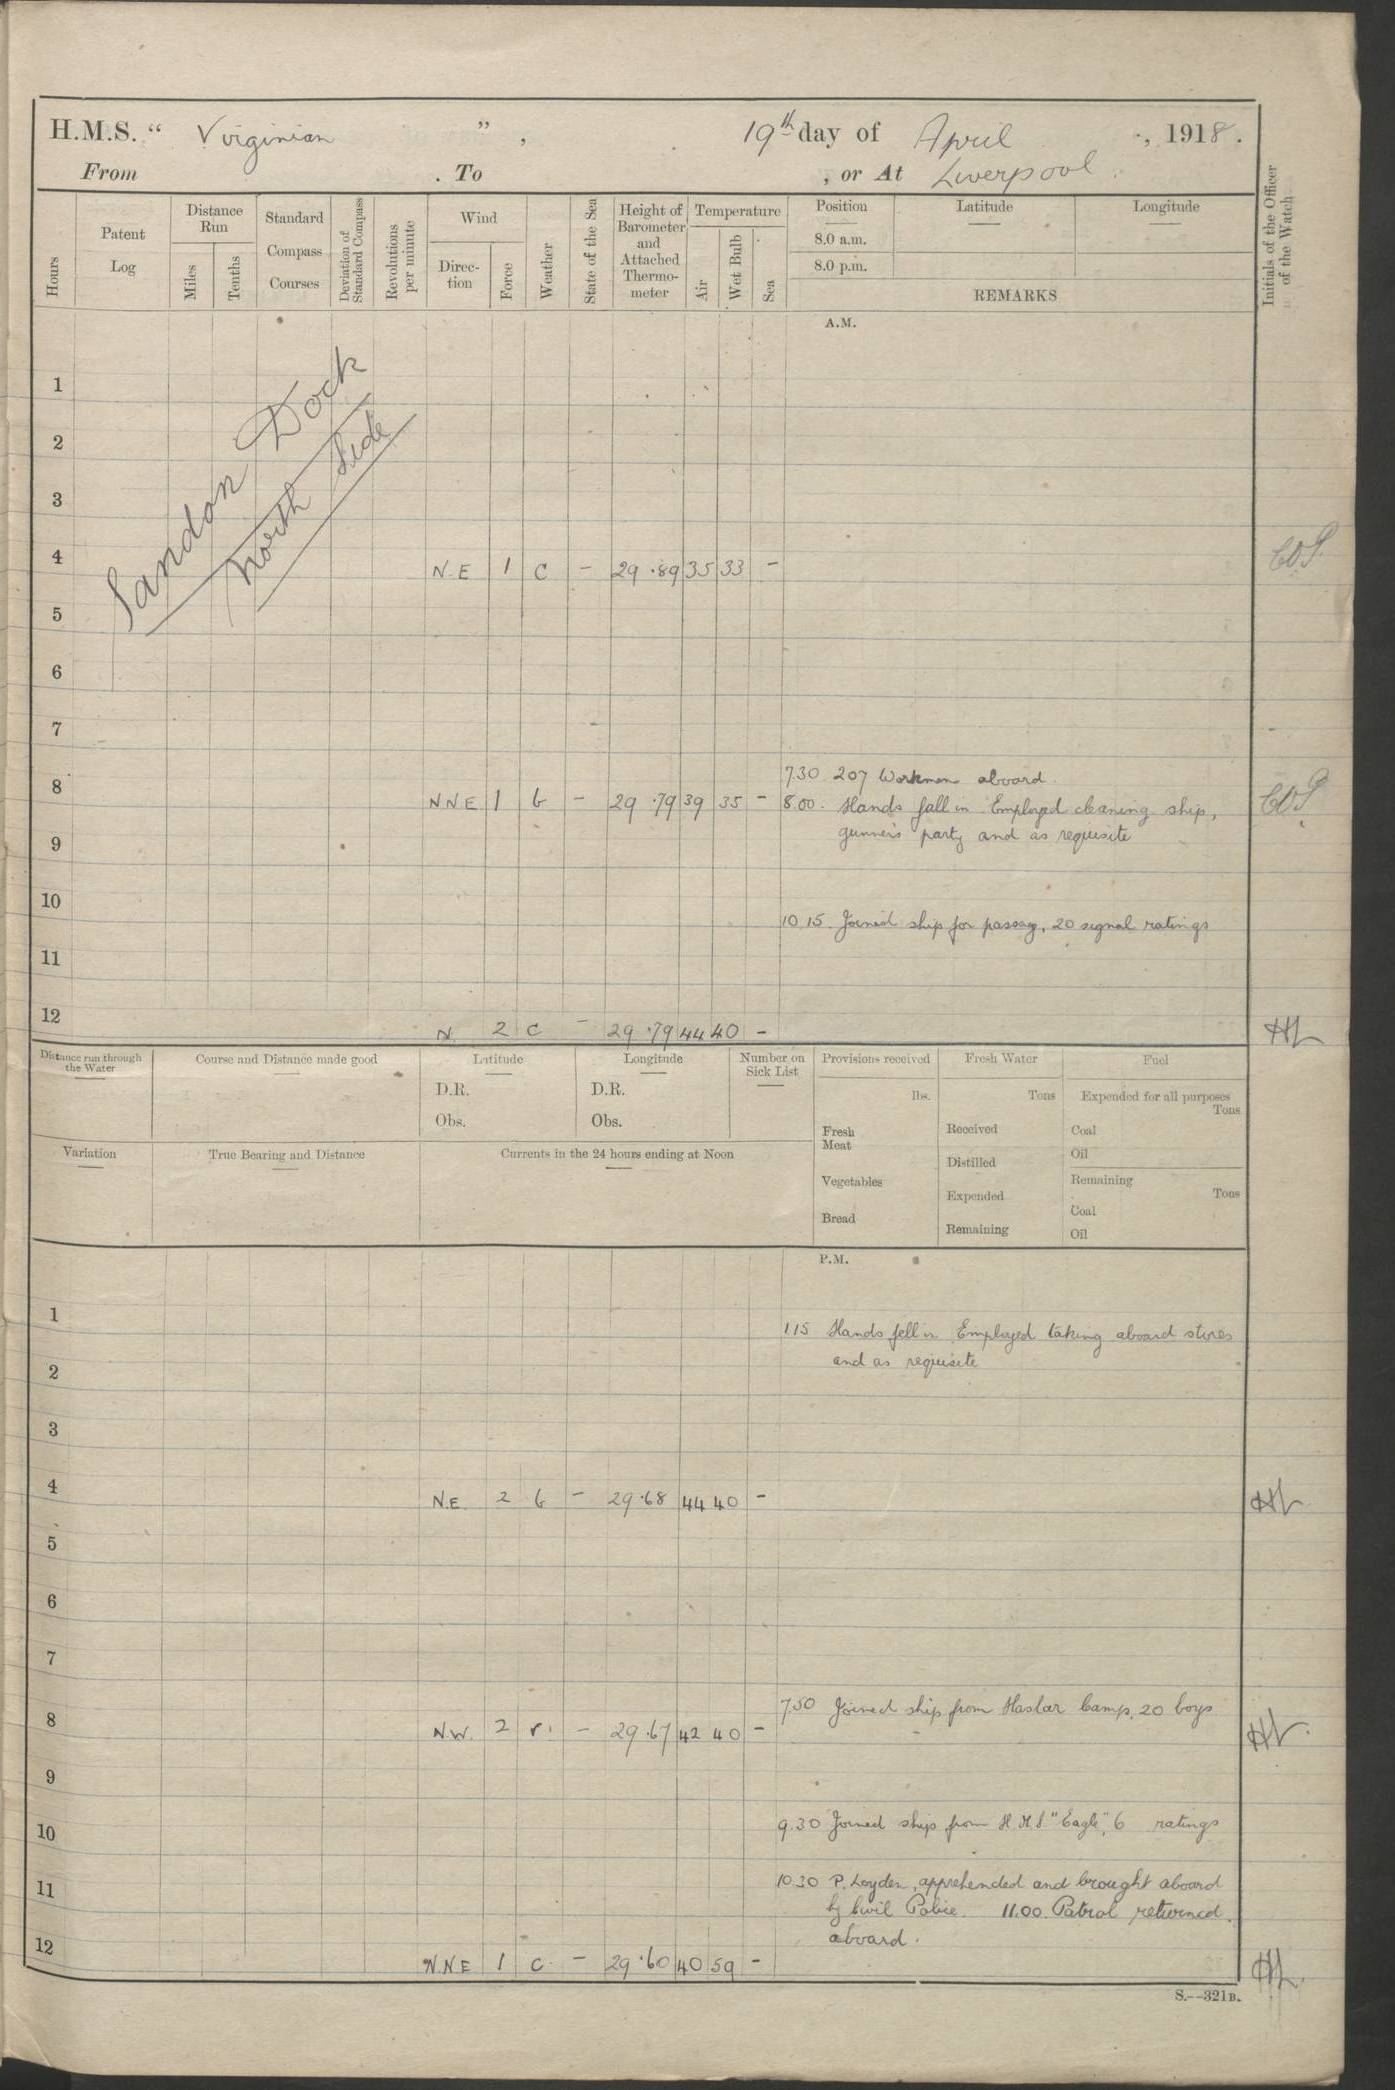 H.M.S. “ Virginian ”, 19th day of April, 1918.
From . To , or At Liverpool.
Hours
Patent Log
Distance Run
Miles
Tenths
Standard Compass Courses
Deviation of Standard Compass
Revolutions per minute
Wind
Direction
Force
Weather
State of the Sea
Height of Barometer and Attached Thermometer
Temperature
Air
Wet Bulb
Sea
Position
8.0 a.m.
8.0 p.m.
Latitude
Longitude
REMARKS
Initials of the Officer of the Watch
A.M.
Sandon Dock
North Side
1
2
3
4 N.E 1 c - 29.89 35 33 -
5
6
7
7.30 207 Workmen aboard.
8 NNE 1 b - 29.79 39 35 - 8.00. Hands fall in Employed cleaning ship,
gunners party and as requisite
9
10
10.15 Joined ship for passage, 20 signal ratings
11
12 N 2 c - 29.79 44 40 - HL
Distance run through the Water
Course and Distance made good
Latitude
D.R.
Obs.
Longitude
D.R.
Obs.
Number on Sick List
Provisions received
lbs.
Fresh Meat
Vegetables
Bread
Fresh Water
Tons
Received
Distilled
Expended
Remaining
Fuel
Expended for all purposes
Tons
Coal
Oil
Remaining
Tons
Coal
Oil
Variation
True Bearing and Distance
Currents in the 24 hours ending at Noon
P.M.
1
1.15 Hands fell in Employed taking aboard stores
and as requisite
2
3
4 N.E. 2 b - 29.68 44 40 - HL
5
6
7
7.50 Joined ship from Haslar Camp, 20 boys
8 N.W. 2 r. - 29.67 42 40 - HL.
9
9.30 Joined ship from H.M.S "Eagle", 6 ratings
10
10.30 P. Loyden, apprehended and brought aboard
11
by Civil Police. 11.00. Patrol returned
aboard.
12 N.NE 1 c. - 29.60 40 59 - HL.
S.--321B.